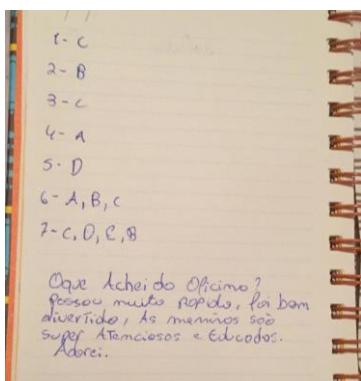 1- C
2- B
3- C
4- A
5- D
6- A, B, C
7- C, D, E, B
Oque Achei do Oficima?
Passou muito Rapido, foi bem
divertido, As meninas são
super Atenciosas e Educadas.
Adorei.